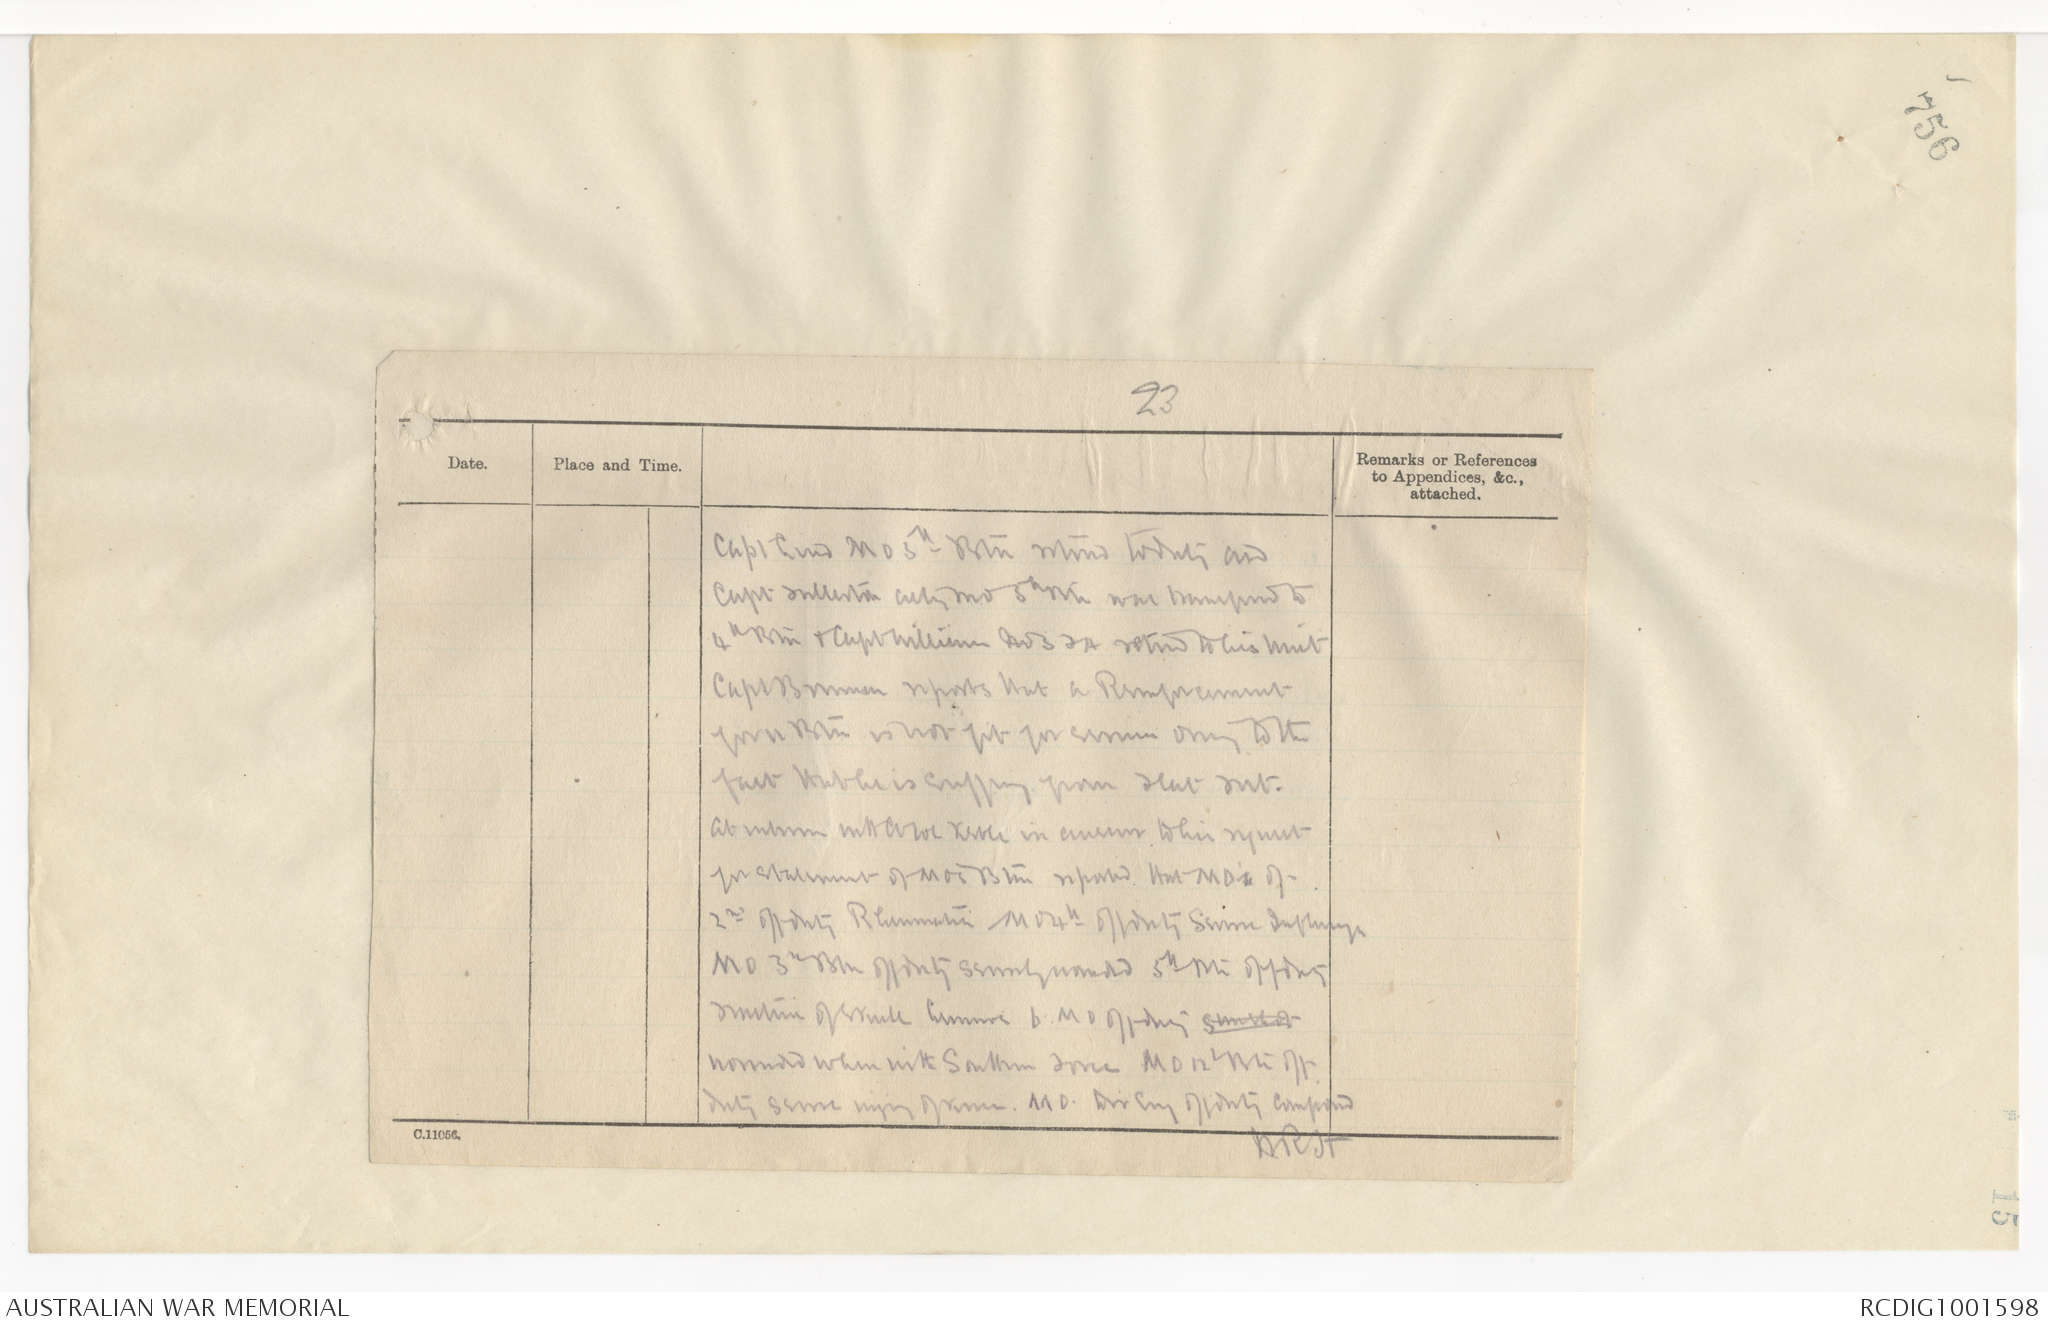 756
23
Date.
Place and Time.
Remarks or References
to Appendices, &c.,
attached.
Capt Lind MO 5th Btn retnd to duty and
Capt Fullerton actg MO 5th Btn was transferred to
4th Btn & Capt Williams 3 FA retnd to his Unit
Capt Brennan reports that a Reinforcement
for 11 Btn is not fit for service owing to the
fact that he is suffering from Flat Feet.
in answer to his request
for statement of MOs Btn reported that MO's of
2nd off duty Rheumatic MO 4th off duty Severe
MO 3rd Btn off duty severely wounded 5th Btn off duty
fracture of skull 6 MO off duty
wounded when with Southern Force MO 12th Btn off
duty severe injury of knee. MO. Div off duty
C.11056.
15
AUSTRALIAN WAR MEMORIAL
RCDIG1001598